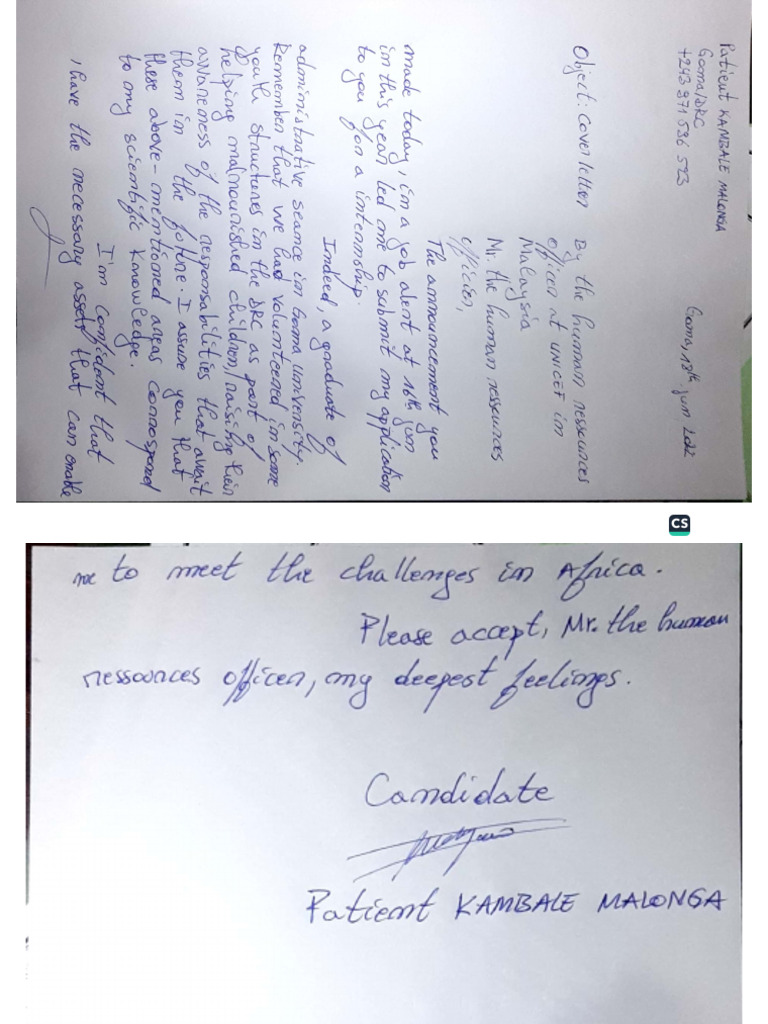 Patient KAMBALE MALONGA
Goma/DRC
+243 971 536 523
Goma, 18th jun 2022
Object: cover letter
By the human ressources
officer at UNICEF in
Malaysia
Mr. the human ressources
officier,
The announcement you
made today, i'm a job alert at 16th jun
in this year led me to submit my application
to you for a internship.
Indeed, a graduate of
administrative seance in Goma university.
Remember that we had volunteered in some
youth structures in the DRC as part of
helping malnourished children, raising their
awareness of the responsabilities that await
them in the future. I assure you that
these above-mentioned areas correspond
to my scientific knowledge.
I'm confident that
i have the necessary asset that can enable
CS
me to meet the challenges in Africa.
Please accept, Mr. the human
ressources officer, my deepest feelings.
Candidate
Patient KAMBALE MALONGA